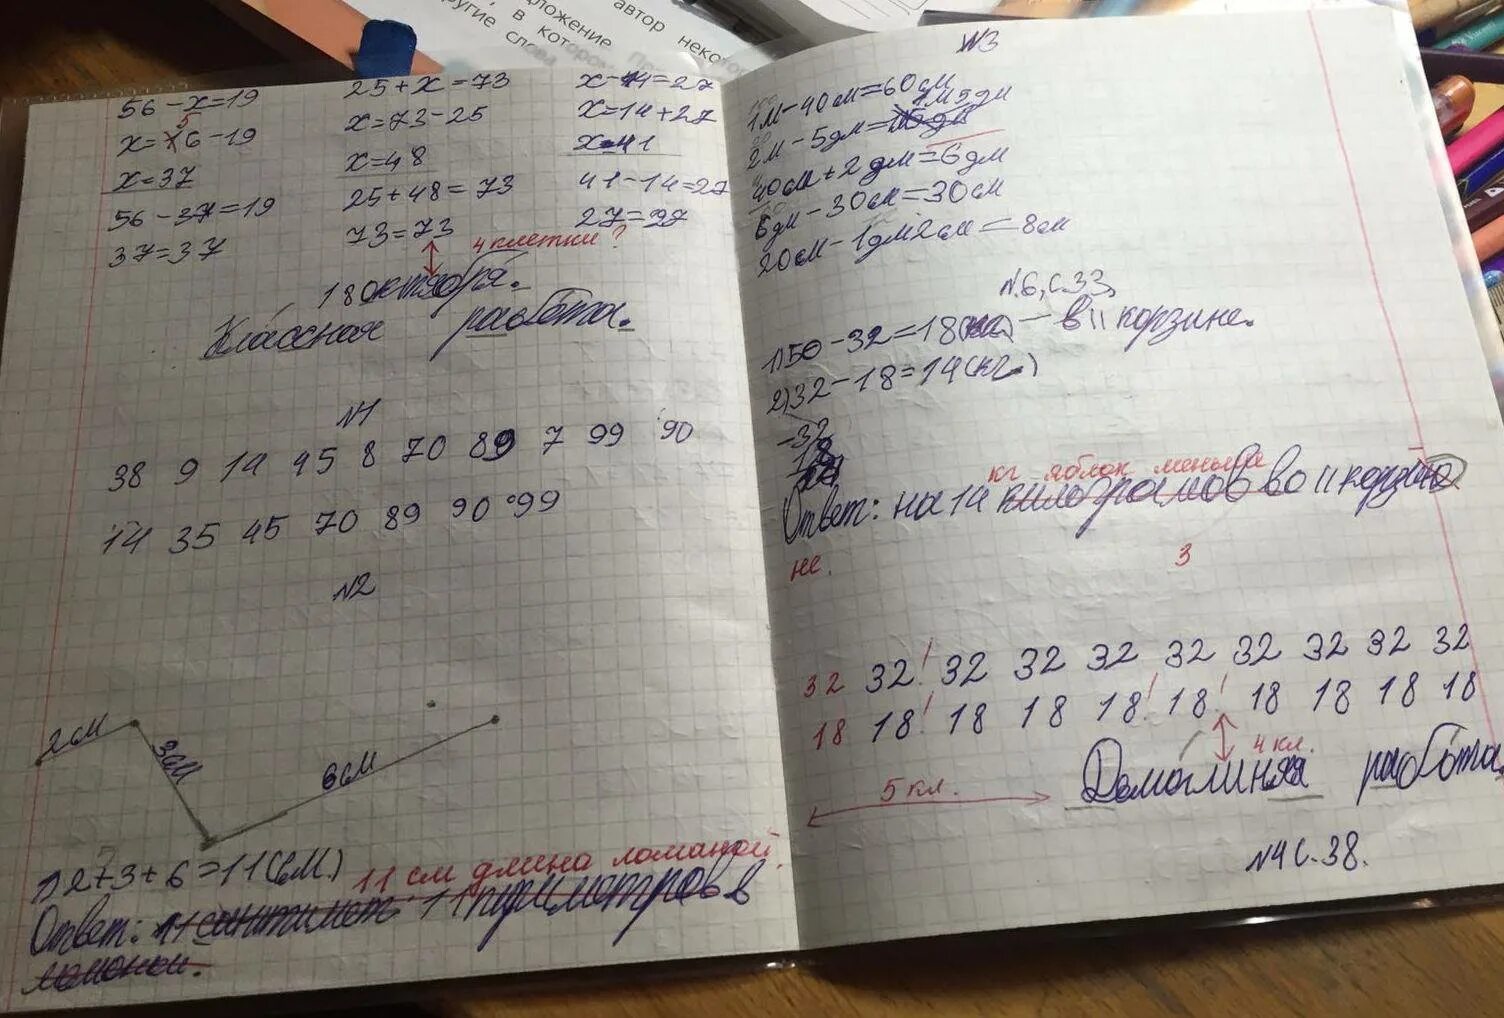 автор неко
дложение
, в котором
другие слова
56-x=19
x=56-19
x=37
56-37=19
37=37
25+x=73
x=73-25
x=48
25+48=73
73=73
x-14=27
x=14+27
x=41
41-14=27
27=27
4 клетки?
18 октября.
Классная работа.
№1
38 9 14 45 8 70 89 7 99 90
14 35 45 70 89 90 99
№2
2см
3см
6см
1)2+3+6=11(см.)
11 см длина ломаной.
Ответ: 11 сантимет 11 периметров в
ломаной.
№3
1м-40см=60см
1м5дм
2м-5дм=15дм
40см+2дм=6дм
6дм-30см=30см
20см-1дм2см=8см
№6, с.33,
1)50-32=18(кг) - в II корзине.
2)32-18=14(кг.)
-32
18
кг яблок меньше
Ответ: на 14 килограмов во II корзине
не.
3
32 32! 32 32 32 32 32 32 32 32
18 18! 18 18 18! 18! 18 18 18 18
4 кл.
5 кл.
Домашняя работа.
№4 с.38.